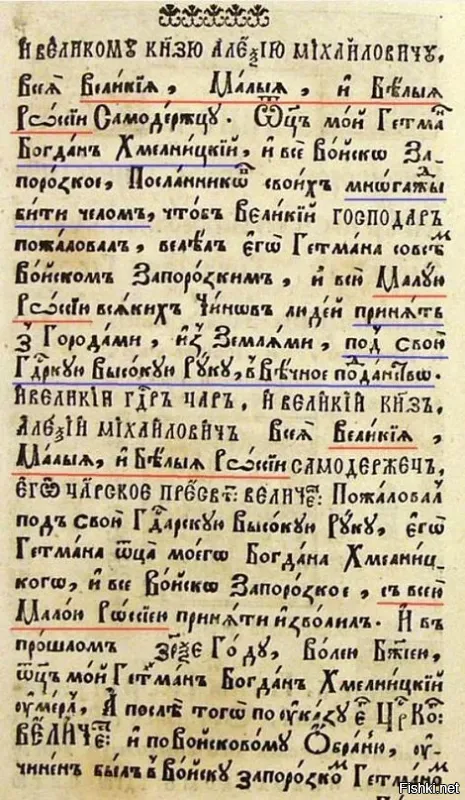 И҆ ВЕЛИКОМꙋ КН҃ЗЮ АЛЕѮ҇ІЮ МІХАИЛОВИЧꙋ,
Всеѧ̀ Вели́кїѧ, Ма́лыѧ, и҆ Бѣ́лыѧ
Рѡсі́и Самоде́ржцꙋ. Ѿц҃ъ мо́й Гетма́нъ
Богда́нъ Хмелни́цкїй, и҆ всѐ Во́йскѡ За-
поро́зкое, Посла́нникѡвъ свои́хъ мнѡга́жды
би́ти чело́мъ, что́бъ Вели́кїй господа́ръ
пожа́ловалъ, веле́лъ є҆гѡ̀ Гетма́на совсе́мъ
Во́йскомъ Запоро́зкимъ, и҆ все́ю Ма́лꙋю
Рѡсі́и всѧ́кихъ Чи́нѡвъ люде́й принѧ́ть
з Города́ми, и҆з Землѧ́ми, под сво́ю
Гд҃рскꙋю Высо́кꙋю Рꙋ́кꙋ, в Вѣ́чное по́данство.
И҆ВЕЛИКИ ГДР҃Ъ ЧАРЪ, И҆ ВЕЛИКІЙ КН҃ЗЪ,
АЛЕѮ҇ІЙ МІХАИЛОВИЧЪ Всеѧ̀ Вели́кїѧ,
Ма́лыѧ, и҆ Бѣ́лыѧ Рѡсі́и САМОДЕРЖЕЧЪ,
Е҆ГѠ̀ ЧАРСКОЕ ПРЕСВѢТ: ВЕЛИЧЕ: Пожа́ловалъ
подъ свою̀ Гд҃рскꙋю Высо́кꙋю Рꙋ́кꙋ, є҆гѡ̀
Гетма́на ѿц҃а̀ моегѡ̀ Богда́на Хмелни́ц-
когѡ, и҆ всѐ Во́йскѡ Запоро́зкое, съ все́ю
Ма́лою Рѡсі́ею принѧ́ти и҆зво́лилъ. И҆ въ
про́шломъ ҂зр҃ѯе Го́дꙋ, во́лею Бж҃їею,
ѿц҃ъ мо́й Гетма́нъ Богда́нъ Хмелни́цкїй
оу҆ме́рлъ, А҆ послѣ̀ тогѡ̀ по оу҆ка́зꙋ є҆̀ Ц҃РКО:
ВЕЛИЧЕ: и҆ по Войско́вомꙋ Ѻ҆бра́нїю, оу҆-
чине́нъ бы́лъ в Во́йскꙋ Запоро́зкомъ Гетма́номъ
Fishki.net